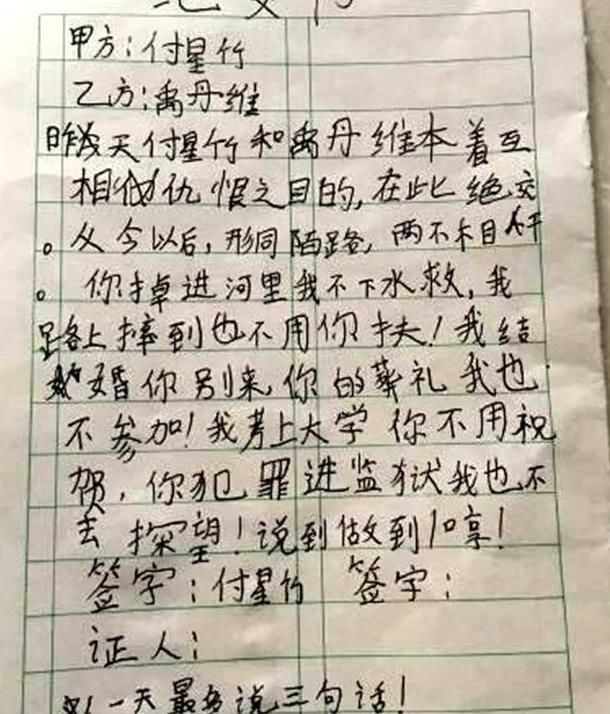 甲方:付星竹
乙方:禹丹维
昨天付星竹和禹丹维本着互
相仇恨之目的,在此绝交
。从今以后,形同陌路,两不相干
。你掉进河里我不下水救,我
路上摔到也不用你扶!我结
婚你别来,你的葬礼我也
不参加!我考上大学你不用祝
贺,你犯罪进监狱我也不
去探望!说到做到!哼!
签字:付星竹 签字:
证人:
一天最多说三句话!